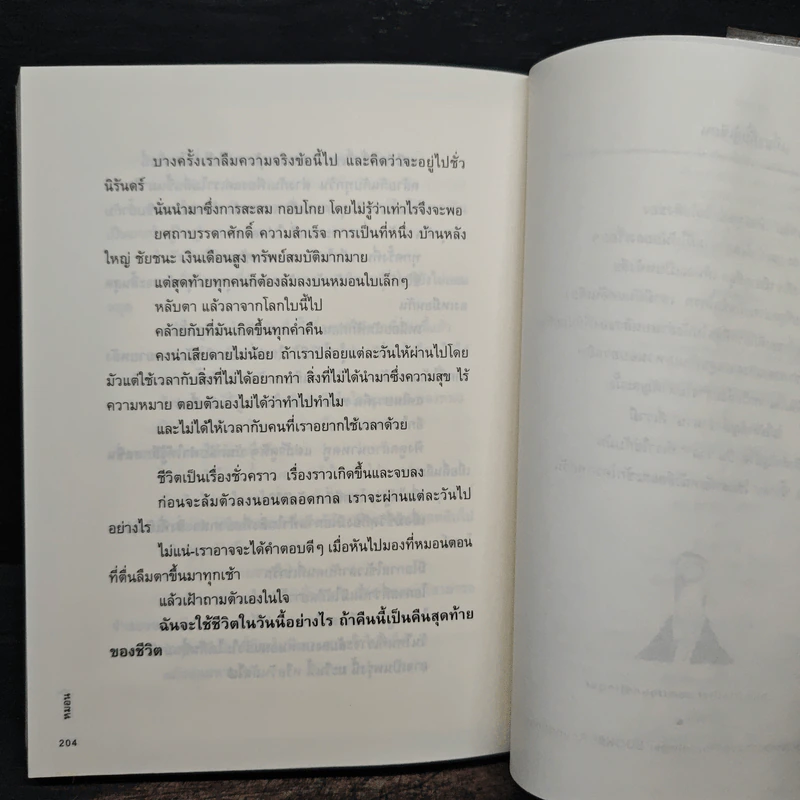 บางครั้งเราลืมความจริงข้อนี้ไป และคิดว่าจะอยู่ไปชั่ว
นิรันดร์
นั่นนำมาซึ่งการสะสม กอบโกย โดยไม่รู้ว่าเท่าไรจึงจะพอ
ยศถาบรรดาศักดิ์ ความสำเร็จ การเป็นที่หนึ่ง บ้านหลัง
ใหญ่ ชัยชนะ เงินเดือนสูง ทรัพย์สมบัติมากมาย
แต่สุดท้ายทุกคนก็ต้องล้มลงบนหมอนใบเล็กๆ
หลับตา แล้วลาจากโลกใบนี้ไป
คล้ายกับที่มันเกิดขึ้นทุกค่ำคืน
คงน่าเสียดายไม่น้อย ถ้าเราปล่อยแต่ละวันให้ผ่านไปโดย
มัวแต่ใช้เวลากับสิ่งที่ไม่ได้อยากทำ สิ่งที่ไม่ได้นำมาซึ่งความสุข ไร้
ความหมาย ตอบตัวเองไม่ได้ว่าทำไปทำไม
และไม่ได้ให้เวลากับคนที่เราอยากใช้เวลาด้วย
ชีวิตเป็นเรื่องชั่วคราว เรื่องราวเกิดขึ้นและจบลง
ก่อนจะล้มตัวลงนอนตลอดกาล เราจะผ่านแต่ละวันไป
อย่างไร
ไม่แน่-เราอาจจะได้คำตอบดีๆ เมื่อหันไปมองที่หมอนตอน
ที่ตื่นลืมตาขึ้นมาทุกเช้า
แล้วเฝ้าถามตัวเองในใจ
ฉันจะใช้ชีวิตในวันนี้อย่างไร ถ้าคืนนี้เป็นคืนสุดท้าย
ของชีวิต
หมอน
204